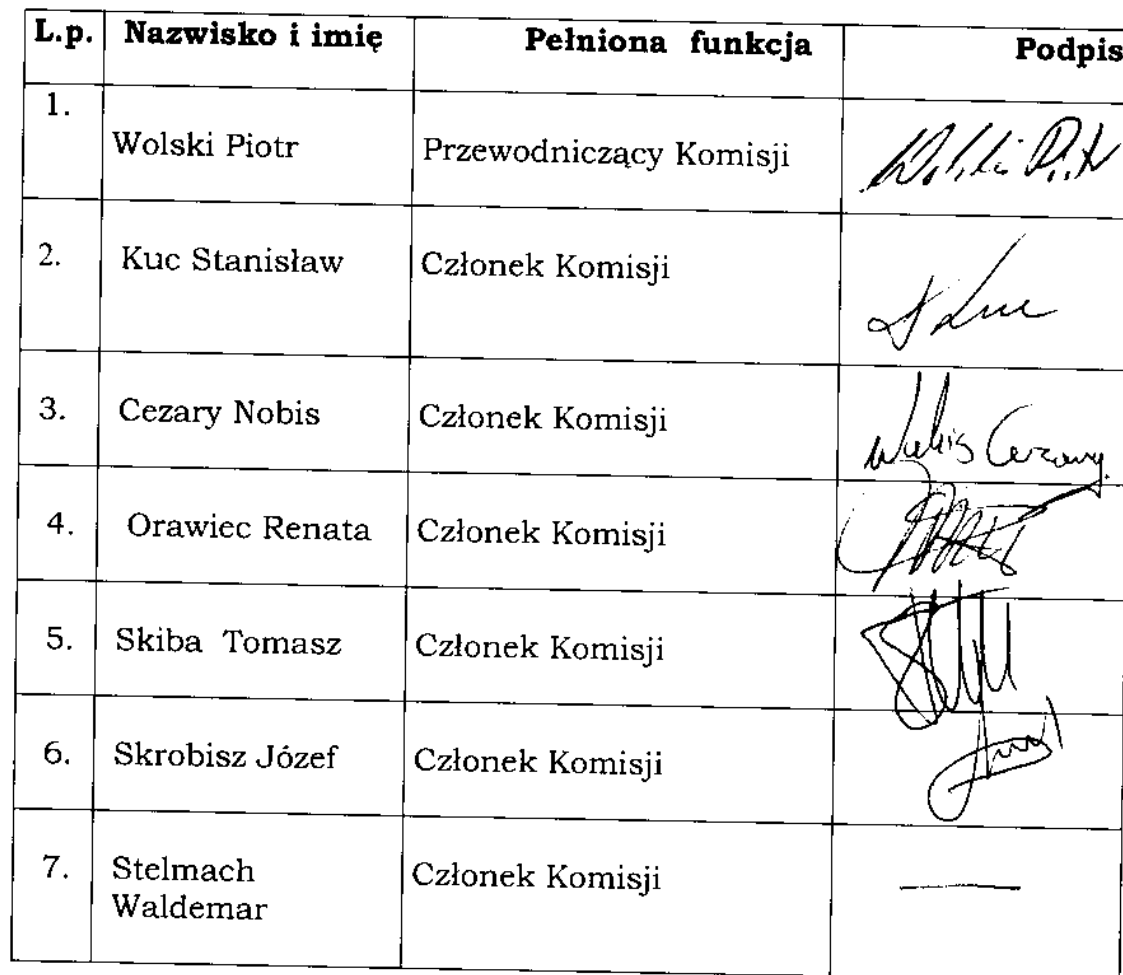 L.p. Nazwisko i imię Pełniona funkcja Podpis
1. Wolski Piotr Przewodniczący Komisji
2. Kuc Stanisław Członek Komisji
3. Cezary Nobis Członek Komisji
4. Orawiec Renata Członek Komisji
5. Skiba Tomasz Członek Komisji
6. Skrobisz Józef Członek Komisji
7. Stelmach Członek Komisji —
Waldemar